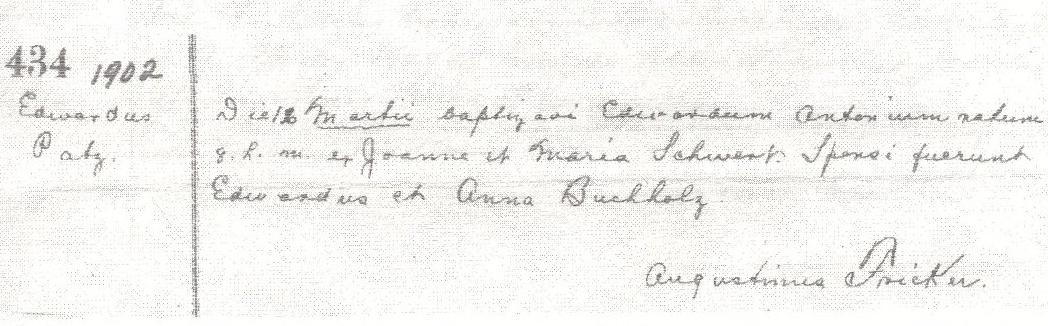 434 1902
Edwardus
Patz.
Die 12 Martii baptizavi Edwardum Antonium natum
g. h. m. ex Joanne et Maria Schwert. Sponsi fuerunt
Edwardus et Anna Buchholz
Augustinus Pricker.